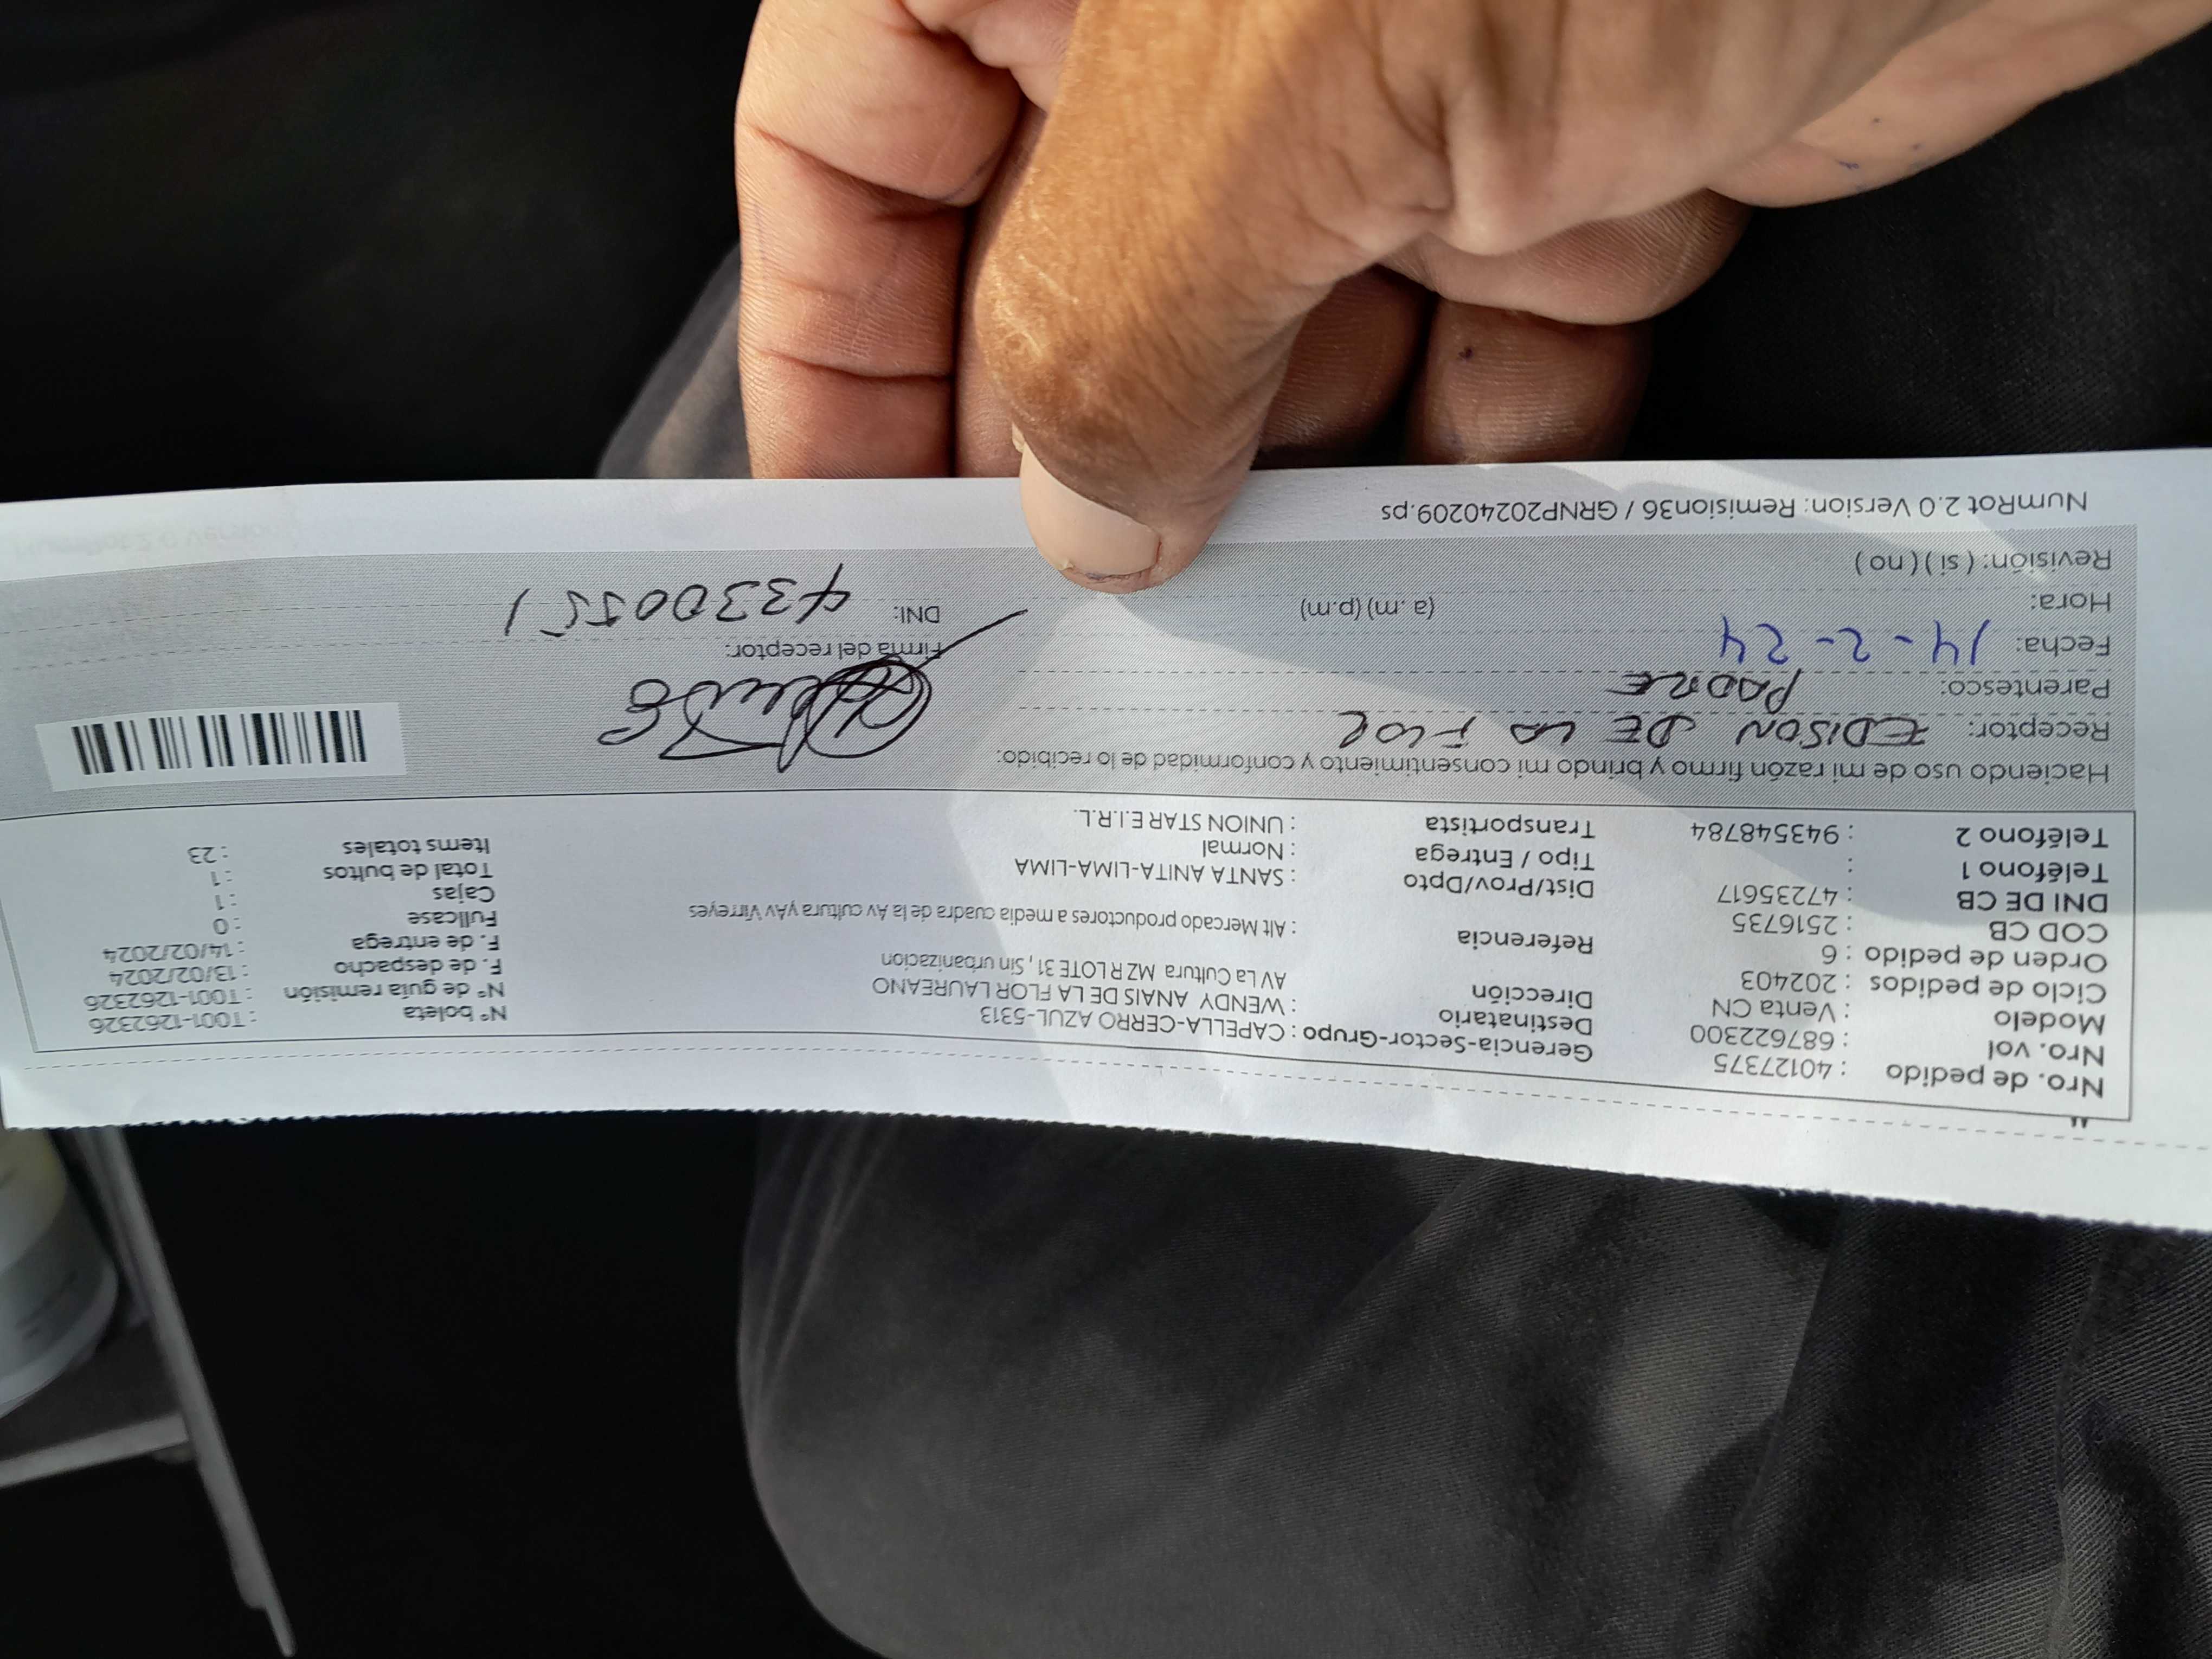 Nro. de pedido : 40127375
Nro. vol : 687622300
Modelo : Venta CN
Ciclo de pedidos : 202403
Orden de pedido : 6
COD CB : 2516735
DNI DE CB : 47235617
Teléfono 1 :
Teléfono 2 : 943548784
Gerencia-Sector-Grupo : CAPELLA-CERRO AZUL-5313
Destinatario : WENDY ANAIS DE LA FLOR LAUREANO
Dirección AV La Cultura MZ R LOTE 31, Sin urbanizacion
Referencia : Alt Mercado productores a media cuadra de la Av cultura yAv Virreyes
Dist/Prov/Dpto : SANTA ANITA-LIMA-LIMA
Tipo / Entrega : Normal
Transportista : UNION STAR E.I.R.L.
N° boleta : T001-1262326
N° de guía remisión : T001-1262326
F. de despacho : 13/02/2024
F. de entrega : 14/02/2024
Fullcase : 0
Cajas : 1
Total de bultos : 1
Items totales : 23
Haciendo uso de mi razón firmo y brindo mi consentimiento y conformidad de lo recibido:
Receptor: EDISON DE LA FLOR
Parentesco: PADRE
Fecha: 14-2-24
Hora: (a .m) (p.m)
Revisión: ( si ) ( no )
Firma del receptor:
DNI: 43300551
NumRot 2.0 Version: Remision36 / GRNP20240209.ps